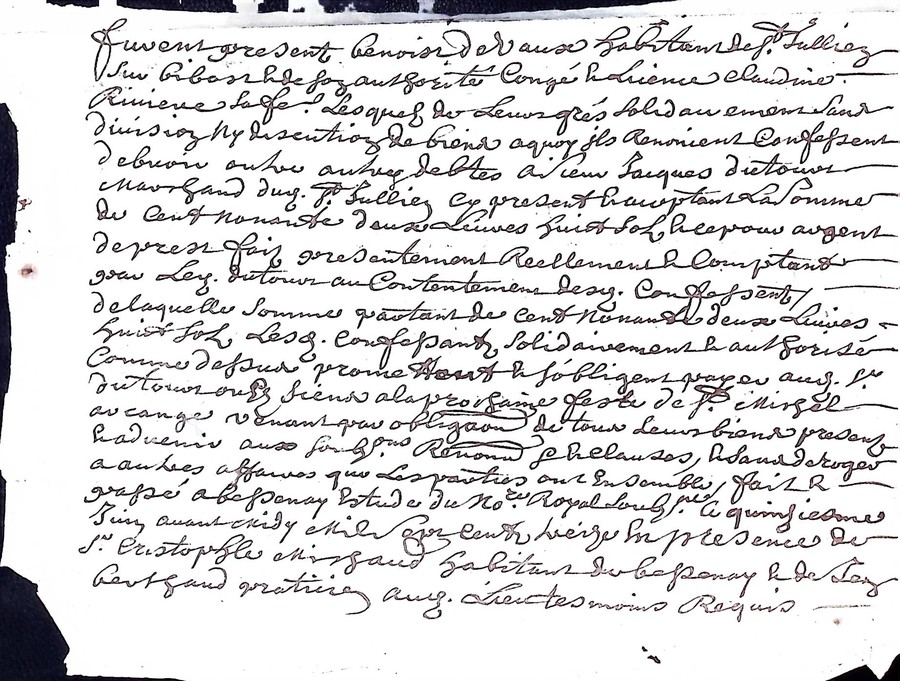 furent present benoist deVaux habitant de st Jullien
sur bibost & de son authorité Congé & licence claudine
Riviere sa fe. Lesquels de Leurs grés solidairement sans
division Ny discution de biens a quoy ils Renoncent Confessent
debvoir outre autres debtes a sieur Jacques dutour
Marchand dug. st Jullien cy present & acceptant La somme
de Cent Nonante deux Livres huict sols & ce pour argent
de prest fait presentement Reellement & Comptant
par Led. dutour au Contentement desg. Confessent
de laquelle somme partant de Cent Nonante deux Livres
huict sols Lesg. Confessants solidairement & authorisé
Comme dessus promettent & s'obligent payer aug. sr
dutour ou es siens a la prochaine feste de st Michel
arcange venant par obligaon de tous Leurs biens presents
& advenir aux soubns Renons & clauses, & sans deroger
a autres affaires que Les parties ont Ensemble, fait &
passé a bessenay Estude du Nore Royal soubne Le quinziesme
Juin avant Midy Mil sept cents treize En presence de
sr Cristophle Mischaud habitant de bessenay & de Jean
berthaud praticien aug. Lieu tesmoins Requis